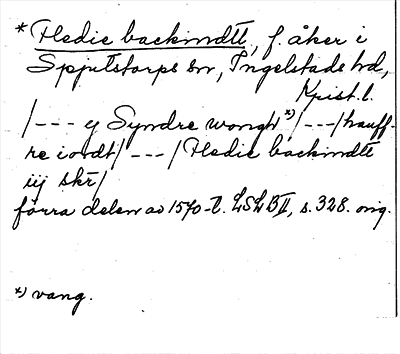 * Hedie backindtt, f. åker i
Spjutstorps sn, Ingelstads hd,
Krist. l.
/--- y Syndre wongh *)/---/hauff-
re iordt/ --- / Hedie backindtt
iij skr/
förra delen av 1570-t. LSLB II, s. 328. orig.
*) vang.